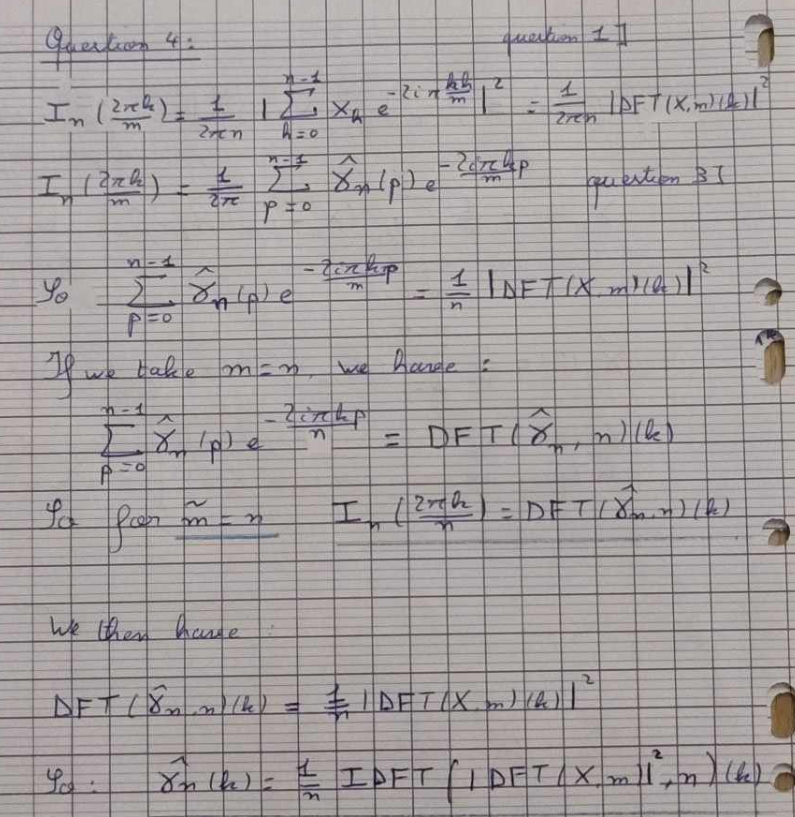 Question 4: question 1]
I_n (2πk/m) = 1/(2πn) |∑_{h=0}^{n-1} X_h e^{-2iπ kh/m}|² = 1/(2πn) |DFT(X,m)(k)|²
I_n (2πk/m) = 1/(2π) ∑_{p=0}^{n-1} γ̂_n(p) e^{-2iπkp/m} question 3]
So ∑_{p=0}^{n-1} γ̂_n(p) e^{-2iπkp/m} = 1/n |DFT(X,m)(k)|²
If we take m=n, we have :
∑_{p=0}^{n-1} γ̂_n(p) e^{-2iπkp/n} = DFT(γ̂_n, n)(k)
So for m̃ = n I_n (2πk/n) = DFT(γ̂_n, n)(k)
We then have :
DFT(γ̂_n, n)(k) = 1/n |DFT(X,m)(k)|²
So : γ̂_n(k) = 1/n IDFT(|DFT(X,m)|², n)(k)